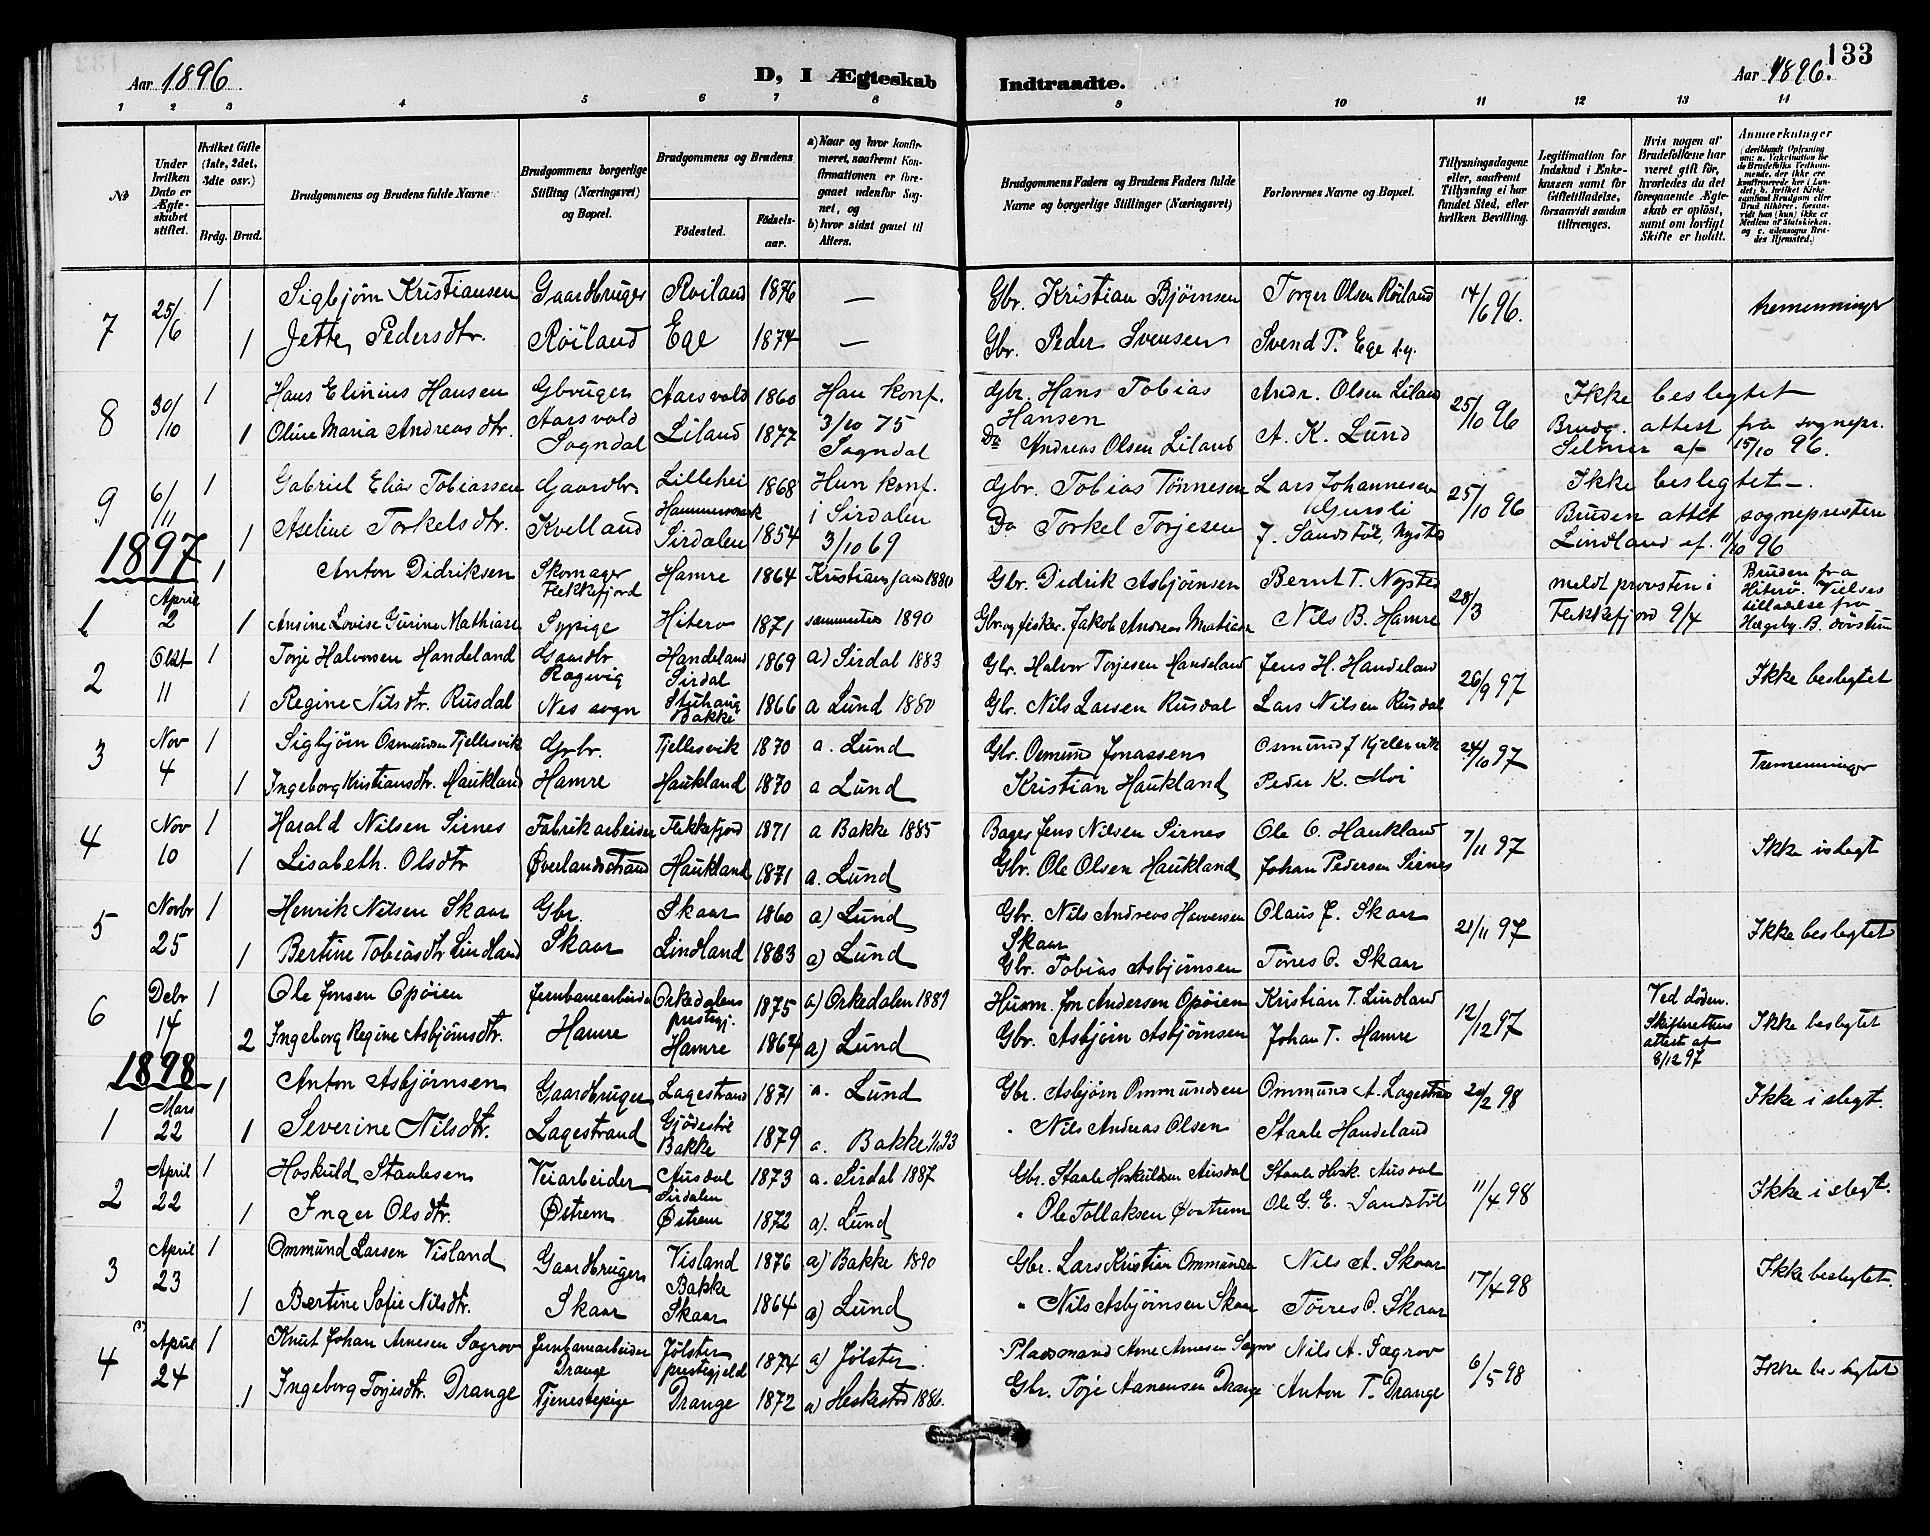 133
Aar 1896. D, I Ægteskab Indtraadte. Aar 1896.
1 2 3 4 5 6 7 8 9 10 11 12 13 14
№
Under hvilken Dato er Ægteskabet stiftet.
Hvilket Gifte (1ste, 2det, 3die osv.)
Brdg. Brud.
Brudgommens og Brudens fulde Navne
Brudgommens borgerlige Stilling (Næringsvei) og Bopæl.
Brudgommens og Brudens
Fødested. Fødselsaar.
a) Naar og hvor konfirmeret, saafremt Konfirmationen er foregaaet udenfor Sognet, og
b) hvor sidst gaaet til Alters.
Brudgommens Faders og Brudens Faders fulde Navne og borgerlige Stillinger (Næringsvei)
Forlovernes Navne og Bopæl.
Tillysningsdagene eller, saafremt Tillysning ei har fundet Sted, efter hvilken Bevilling.
Legitimation for Indskud i Enkekassen samt for Giftetilladelse, forsaavidt saadan tiltrænges.
Hvis nogen af Brudefolkene har været gift før, hvorledes da det foregaaende Ægteskab er opløst, samt om lovligt Skifte er holdt.
Anmærkninger (deriblandt Oplysning om: a. Vakcination for de Brudefolks Vedkommende, der ikke ere konfirmerede her i Landet; b. hvilket Kirkesamfund Brudgom eller Brud tilhører, forsaavidt han (hun) ikke er Medlem af Statskirken, og c. udensogns Brudes Hjemsted.)
7 25/6 1 Sigbjørn Kristiansen Gaardbruger Roiland 1876 — Gbr. Kristian Bjørnsen Torger Olsen Röiland 14/6 96. tremenninger
1 Jette Pedersdtr. Röiland Ege 1874 — Gbr. Peder Svensen Svend T. Ege
8 30/10 1 Hans Elinius Hansen Gbruger Aarsvold 1860 Han konf. Gbr. Hans Tobias Andr. Olsen Liland 25/10 96 Ikke beslegtet
Aarsvold 3/10 75 Hansen Brudg. attest fra sognepr.
1 Oline Maria Andreasdtr. Sogndal Liland 1877 Sogndal Do Andreas Olsen Liland A. K. Lund Selmer af 15/10 96.
9 6/11 1 Gabriel Elias Tobiassen Gaardbr. Lillehei 1868 Hun konf. Gbr. Tobias Tönnesen Lars Johannesen 25/10 96 Ikke beslegtet.
Hammersmark i Sirdalen Gursli Bruden attest sognepresten
1 Aseline Torkelsdtr. Kvelland Sirdalen 1854 3/10 69 Do Torkel Torjesen J. Sandstöl, Nysted Lindland af. 11/10 96
1897
1 Anton Didriksen Skomager Hamre 1864 Kristiansand 1880 Gbr. Didrik Asbjørnsen Bernt T. Nysted meldt provsten i Bruden fra
1 April 2 Flekkefjord 28/3 Flekkefjord 9/4 Hiterø. Vielses
1 Ansine Lovise Gurine Mathiasen Sypige Hiterø 1871 sammesteds 1890 Gbr. og fisker. Jakob Andreas Matiasen Nils B. Hamre tilladelse fra
2 Okt 11 1 Torje Halvorsen Handeland Gaardbr Handeland Sirdal 1869 a) Sirdal 1883 Gbr. Halvor Torjesen Handeland Jens H. Handeland 26/9 97 Ikke beslegtet
Ragevig
1 Regine Nilsdtr. Rusdal Nes sogn Stuhaug Bakke 1866 a Lund 1880 Gbr. Nils Larsen Rusdal Lars Nilsen Rusdal
3 Nov 4 1 Sigbjörn Osmundsen Tjellesvik Gbr. Tjellesvik 1870 a. Lund Gbr. Osmund Jonassen Osmund J Kjellesvik 24/10 97 Tremenninger
1 Ingeborg Kristiansdtr. Haukland Hamre Haukland 1870 a Lund Kristian Haukland Peder K. Moi
4 Nov 10 1 Harald Nilsen Sirnes Fabrikarbeider Flekkefjord 1871 a Bakke 1885 Bager Jens Nilsen Sirnes Ole O. Haukland 7/11 97 Ikke i slegt
1 Lisabeth. Olsdtr Øverlandsstrand Haukland 1871 a. Lund Gbr. Ole Olsen Haukland Johan Pedersen Sirnes
5 Novbr 25 1 Henrik Nilsen Skaar Gbr. Skaar 1860 a) Lund Gbr. Nils Andreas Havorsen Skaar Olaus J. Skaar 21/11 97 Ikke beslegtet
1 Bertine Tobiasdtr Lindland Skaar Lindland 1863 a) Lund Gbr. Tobias Asbjørnsen Törres O. Skaar
6 Debr 14 1 Ole Jonsen Opøien Jernbanearbeider Orkedalens prestegj. 1875 a) Orkedalen 1889 Husm. Jon Andersen Opøien Kristian T. Lindland 12/12 97 Ved døden. Skifterettens attest af 8/12 97 Ikke beslegtet
2 Ingeborg Regine Asbjørnsdtr. Hamre Hamre 1864 a) Lund Gbr. Asbjørn Asbjørnsen Johan T. Hamre
1898
1 Anton Asbjørnsen Gaardbruger Lagestrand 1871 a. Lund Gbr. Asbjørn Ommundsen Ommund A. Lagestrand 20/2 98 Ikke i slegt.
1 Mars 22 1 Severine Nilsdtr. Lagestrand Gjødestöl Bakke 1879 a. Bakke. 1893 " Nils Andreas Olsen Staale Handeland
2 April 22 1 Hoskuld Staalesen Veiarbeider Ausdal Sirdalen 1873 a. Sirdal 1887 Gbr. Staale Hoskuldsen Ausdal Staale Hosk. Ausdal 11/4 98 Ikke i slegt.
1 Inger Olsdtr. Østrem Østrem 1872 a). Lund " Ole Tollaksen Østrem Ole G. E. Sandstöl
3 April 23 1 Ommund Larsen Visland Gaardbruger Visland Bakke 1876 a) Bakke 1890 Gbr. Lars Kristian Ommundsen Nils A. Skaar 17/4 98 Ikke beslegtet.
1 Bertine Sofie Nilsdtr. Skaar Skaar 1864 a) Lund " Nils Asbjørnsen Skaar Törres O. Skaar
4 April 24 1 Knut Johan Arnesen Sagrov Jernbanearbeider Drange Jølster prestegjeld 1874 a) Jølster Pladsmand Arne Arnesen Nils A. Sægrov 6/5 98 Ikke beslegtet
1 Ingeborg Torjesdtr. Drange Tjenestepige Drange 1872 a) Heskestad 1886. Gbr. Torje Aanensen Drange Anton T. Drange